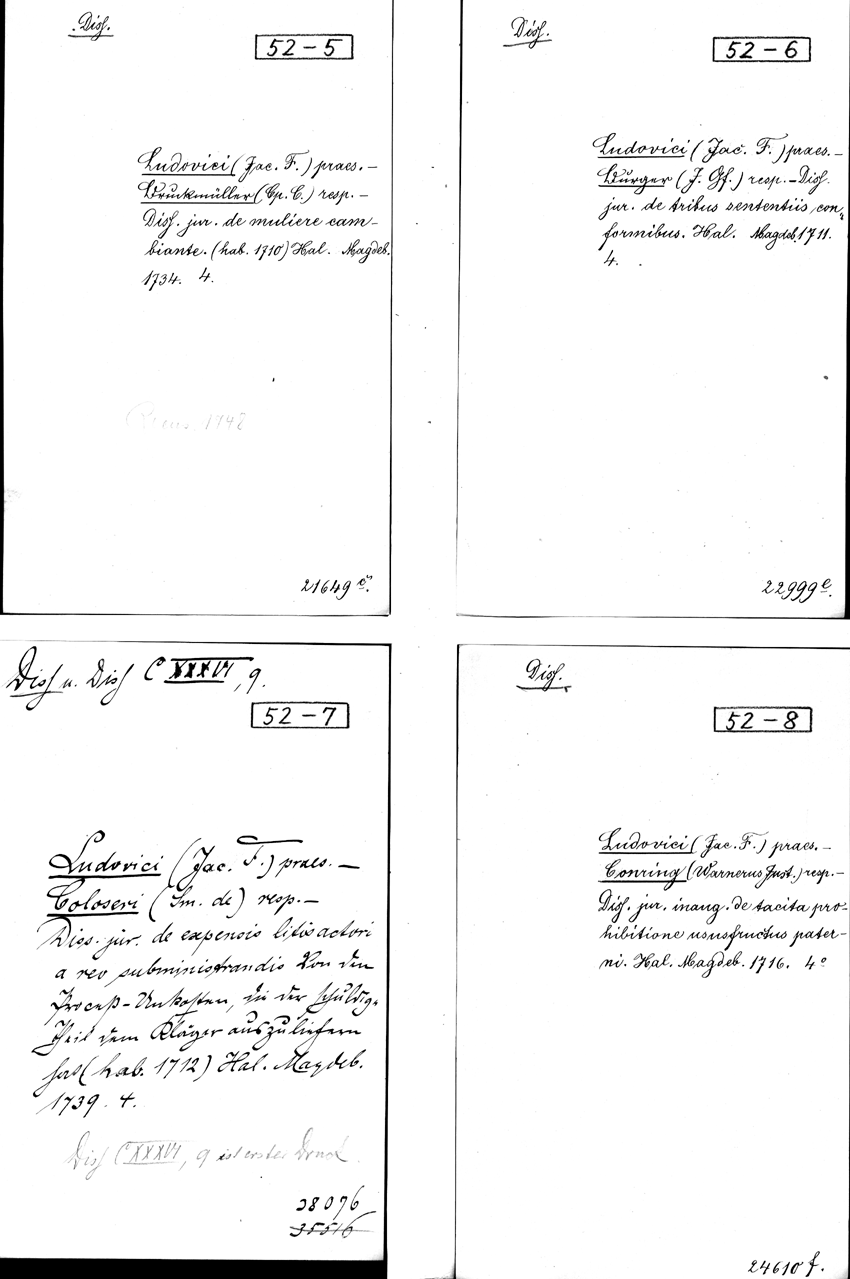 Diss.
52-5
Ludovici (Jac. F.) praes. –
Bruckmüller (Cp. C.) resp. –
Diss. jur. de muliere cam-
biante. (hab. 1710) Hal. Magdeb.
1734. 4.
1748
21649 c.
Diss.
52-6
Ludovici (Jac. F.) praes. –
Bürger (J. Gf.) resp. – Diss.
jur. de tribus sententiis con-
formibus. Hal. Magdeb. 1711.
4.
22999 e.
Diss u. Diss CXXXVI, 9.
52-7
Ludovici (Jac. F.) praes. –
Coloseri (Sm. de) resp. –
Diss. jur. de expensis litis actori
a reo subministrandis Von den
Proceß-Unkosten, die der schuldige
Theil dem Kläger auszuliefern
hat (hab. 1712) Hal. Magdeb.
1739. 4.
Diss CXXXVI, 9 ist erster Druck
38076
35516
Diss.
52-8
Ludovici (Jac. F.) praes. –
Conring (Warnerus Just.) resp. –
Diss. jur. inaug. de tacita pro-
hibitione ususfructus pater-
ni. Hal. Magdeb. 1716. 4°
24610 f.